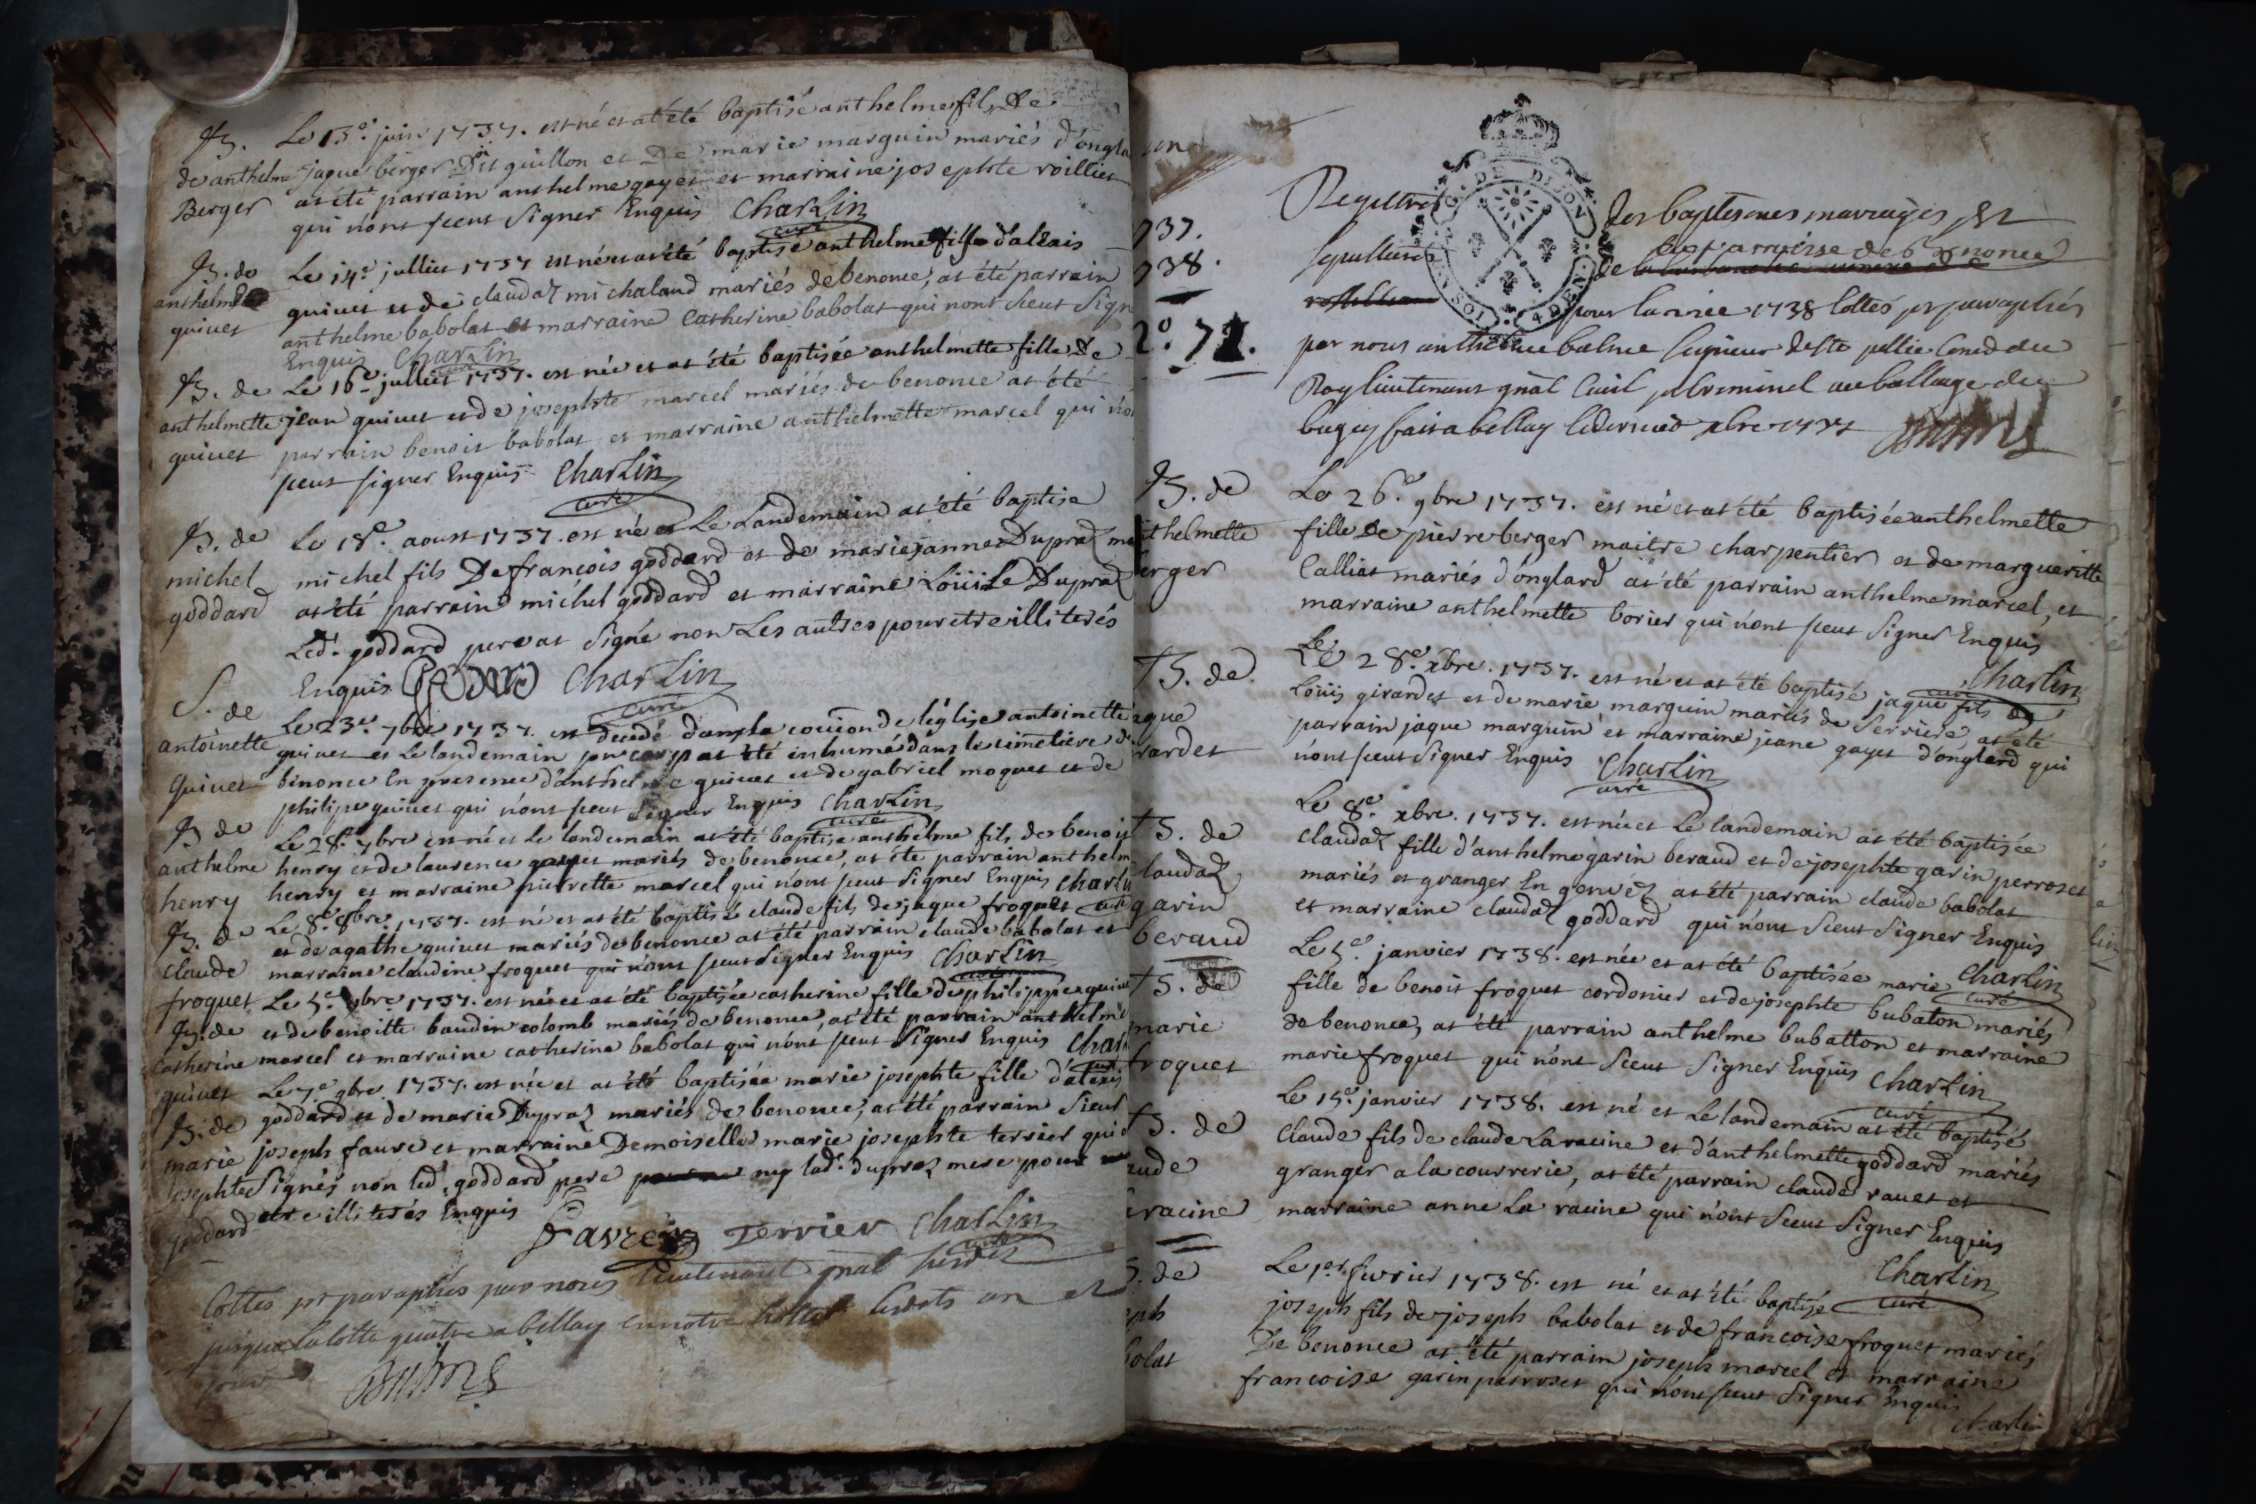 B. de anthelme Berger
Le 13e. juin 1737. est né et at été baptisé anthelme fils de
jaque berger Dit guillon et De marie marguin mariés d'ongla
at été parrain anthelme gayet et marraine josephte roillier
qui n'ont sceut signer Enquis Charlin
curé
B. de anthelme quinet
Le 14e. jullier 1737 est né et at été baptisé anthelme fils d'alexis
quinet et de claudaz michaland mariés de benonce, at été parrain
anthelme babolat et marraine Catherine babolat qui n'ont sceut sign
Enquis Charlin
B. de anthelmette quinet
Le 16e. jullier 1737. est née et at été baptisée anthelmette fille de
jean quinet et de josephte marcel mariés de benonce at été
parrain benoit babolat et marraine anthelmette marcel qui n'on
sceut signer Enquis Charlin
curé
B. de michel goddard
Le 18e. aoust 1737. est né et Le Landemain at été baptisé
michel fils De françois goddard et de marie janne Dupraz ma
at été parrain michel goddard et marraine Loüise Dupraz
Led. goddard pere at signé non Les autres pour etre illiterés
Enquis Charlin
curé
S. de antoinette quinet
Le 23e. 7bre 1737. est decedé dans la couion de l'église antoinette
quinet et Le landemain son corp at été inhumé dans le simetiere de
benonce En presence d'anthelme quinet et de gabriel moquet et de
philipe quinet qui n'ont sceut signer Enquis Charlin
curé
B. de anthelme henry
Le 28e. 7bre est né et le landemain at été baptisé anthelme fils de benoit
henry et de laurence gayet mariés de benonce, at été parrain anthelm
henry et marraine pierrette marcel qui n'ont sceut signer Enquis Charlin
curé
B. de claude froquet
Le 8e. 8bre 1737. est né et at été baptisé claude fils de jaque froquet
et de agathe quinet mariés de benonce at été parrain claude babolat et
marraine claudine froquet qui n'ont sceut signer Enquis Charlin
B. de catherine quinet
Le 5e. 9bre 1737. est née et at été baptisée catherine fille de philippe quine
et de benoitte baudin colomb mariés de benonce, at été parrain anthelme
marcel et marraine catherine babolat qui n'ont sceut signer Enquis Char
B. de marie josephte goddard
Le 7e. 9bre 1737. est née et at été baptisée marie josephte fille d'alexis
goddard et de marie Dupraz mariés de benonce, at été parrain sieur
joseph faure et marraine Demoiselle marie josephte terrier qui
signés non led. goddard pere ny lad. dupraz mere pour
etre illiterés Enquis
Terrier Charlin
curé
Cottés et paraphés par nous lieutenant gnal
jusqua la cotte quatre a bellay en notre hotel
jour
737.
738.
2°. 71.
DE DIJON
Registres des baptesmes mariages et
sepultures de la parroisse de benonce
pour l'année 1738 Cottés et paraphés
par nous anthelme balme seigneur de ste pellée Cons. du
Roy lieutenant gnal Civil et Criminel au balliage du
bugey fait a bellay le xbre 1737
B. de
thelmette
erger
Le 26e. 9bre 1737. est né et at été baptisée anthelmette
fille de pierre berger maitre charpentier et de margueritte
Calliat mariés d'onglard at été parrain anthelme marcel, et
marraine anthelmette borier qui n'ont sceut signer Enquis
Charlin
curé
B. de
aque
rardet
Le 28e. xbre. 1737. est né et at été baptisé jaque fils de
Loüis girardet et de marie marguin mariés de Serriere, at été
parrain jaque marguin et marraine jeane gayet d'onglard qui
n'ont sceut signer Enquis Charlin
curé
B. de
laudaz
garin
beraud
Le 8e. xbre. 1737. est née et Le landemain at été baptisée
claudaz fille d'anthelme garin beraud et de josephte garin perroset
mariés et granger En at été parrain claude babolat
et marraine claudaz goddard qui n'ont sceut signer Enquis
Charlin
curé
B. de
marie
froquet
Le 5e. janvier 1738. est née et at été baptisée marie
fille de benoit froquet cordonier et de josephte bubaton mariés
de benonce, at été parrain anthelme bubatton et marraine
marie froquet qui n'ont sceut signer Enquis Charlin
curé
B. de
aude
aracine
Le 15e. janvier 1738. est né et Le landemain at été baptisé
claude fils de claude Laracine et d'anthelmette goddard mariés
granger a la courrerie, at été parrain claude ravet et
marraine anne La racine qui n'ont sceut signer Enquis
Charlin
curé
. de
eph
bolat
Le 1er. fevrier 1738. est né et at été baptisé
joseph fils de joseph babolat et de francoise froquet mariés
De benonce at été parrain joseph marcel et marraine
francoise garin perroset qui n'ont sceut signer Enquis
Charlin